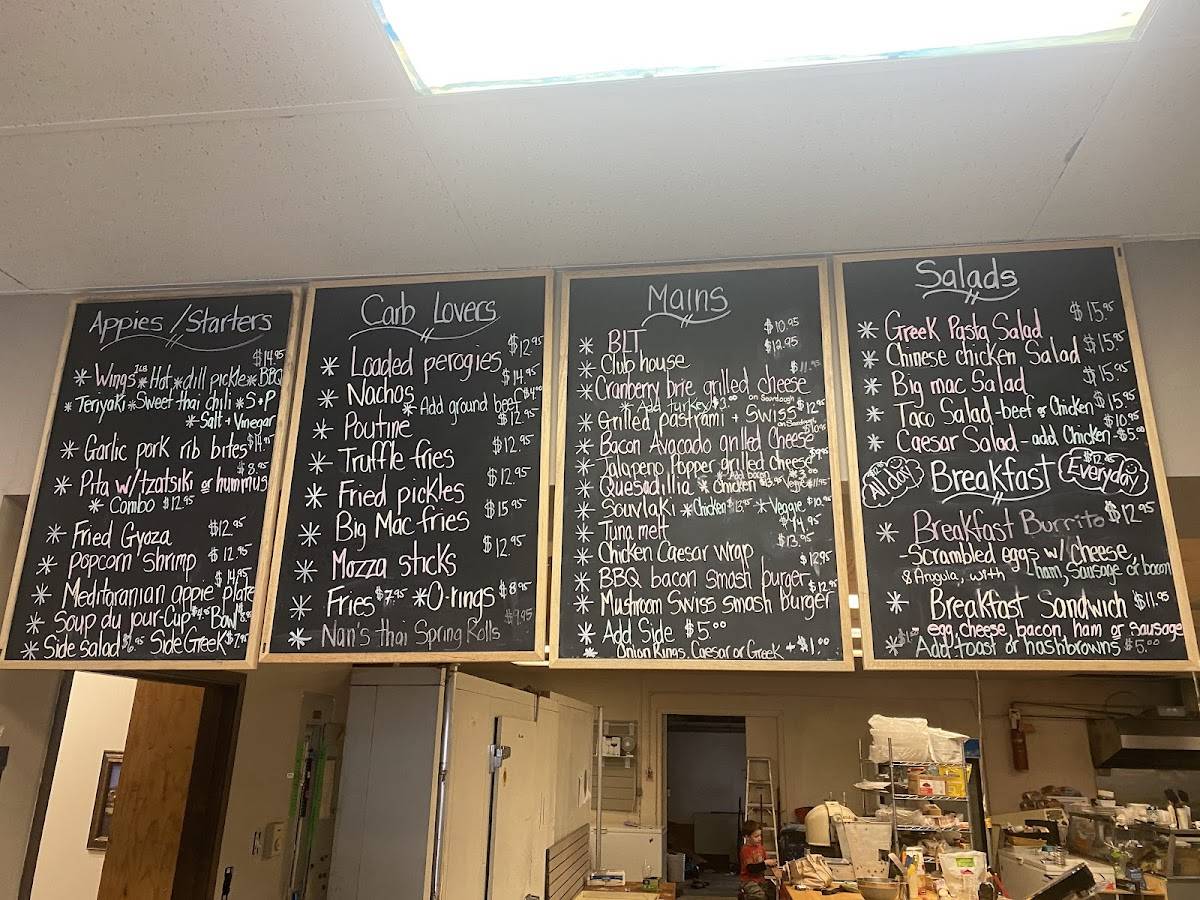 Appies/Starters
$14.95
* Wings 1LB * Hot * dill pickle * BBQ
* Teriyaki * Sweet thai chili * S+P
* Salt + Vinegar
* Garlic pork rib bites $14.95
$8.95
* Pita w/tzatsiki or hummus
* Combo $12.95
* Fried Gyoza $12.95
* Popcorn shrimp $12.95
$14.95
* Meditaranian appie plate
* Soup du jour-Cup $4.95 Bowl $8.95
* Side salad $6.95 Side Greek $7.95
Carb Lovers
* Loaded perogies $12.95
* Nachos $14.95
* Add ground beef $4.00
* Poutine $12.95
* Truffle fries $12.95
* Fried pickles $12.95
* Big Mac fries $15.95
* Mozza sticks $12.95
* Fries $7.95 * O-rings $8.95
* Nan's thai Spring Rolls $9.95
Mains
* BLT $10.95
* Club house $12.95
* Cranberry brie grilled cheese $11.95
* Add turkey $3.00 on Sourdough
* Grilled pastrami + Swiss $12.95
on Sourdough
* Bacon Avocado grilled Cheese $10.95
* Jalapeno Popper grilled Cheese $9.95
* Add bacon $3.00
* Quesadillia * Chicken $13.95 Veggie $11.95
* Souvlaki * Chicken $13.95 * Veggie $10.95
* Tuna melt $14.95
* Chicken Caesar wrap $13.95
* BBQ bacon smash burger $12.95
* Mushroom Swiss smash burger $12.95
* Add Side $5.00
* Onion Rings, Caesar or Greek + $1.00
Salads
* Greek Pasta Salad $15.95
* Chinese chicken Salad $15.95
* Big mac Salad $15.95
* Taco Salad - beef or Chicken $15.95
* Caesar Salad - add Chicken - $5.00
$10.95
All day Breakfast $12.95 Everyday
* Breakfast Burrito $12.95
- Scrambled eggs w/ cheese
& Arugula, with - ham, Sausage or bacon
* Breakfast Sandwich $11.95
egg, cheese, bacon, ham or sausage
* Add toast or hashbrowns $5.00